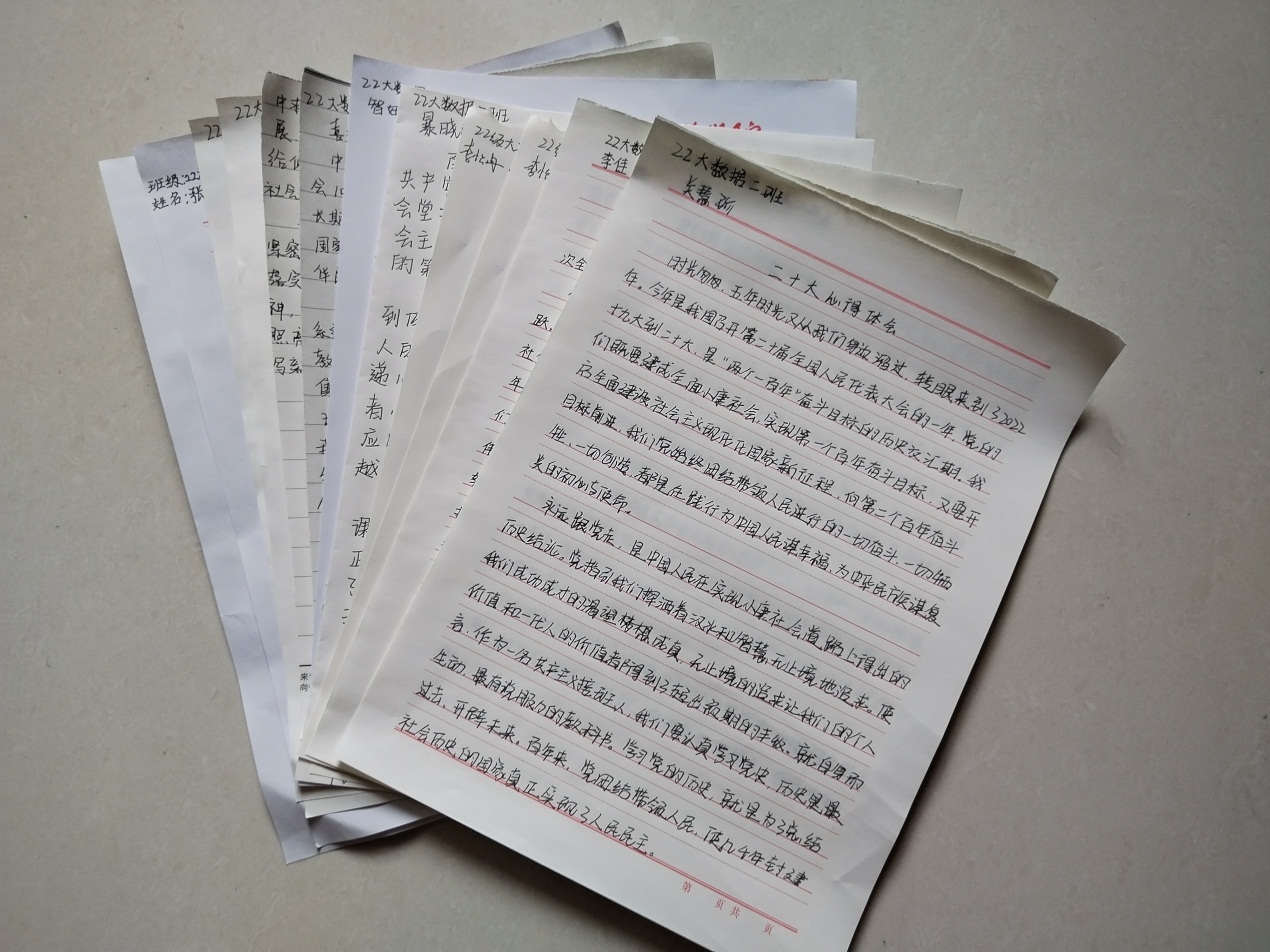 22大数据二班
关慧
二十大心得体会
时光匆匆，五年时光又从我们身边溜过，转眼来到了2022
年。今年是我国召开第二十届全国人民代表大会的一年，党的
十九大到二十大，是“两个一百年”奋斗目标的历史交汇期。我
们既要建成全面小康社会，实现第一个百年奋斗目标，又要开
启全面建设社会主义现代化国家新征程，向第二个百年奋斗
目标前进。我们党始终团结带领人民进行的一切奋斗，一切牺
牲，一切创造，都是在践行为中国人民谋幸福，为中华民族谋复
兴的初心与使命。
永远跟党走，是中国人民在实现小康社会道路上得出的
历史结论。党指引我们挥洒着汗水和智慧无止境地追求。使
我们成功成才的渴望梦想成真，无止境的追求让我们的个人
价值和一代人的价值都得到了超出预期的丰收。就自身而
言，作为一名共产主义接班人，我们要认真学习党史，历史是最
生动、最有说服力的教科书。学习党的历史，就是为了总结
过去，开辟未来。百年来，党团结带领人民，使几千年封建
社会历史的国家真正实现了人民民主。
第 页 共 页
22大数
李佳
次全
跃
社
年
们
22级
李
22级大
22大数据二班
暴晓
共
会堂
会主
的第
到
人民
递
者
应
越
课
正
22大数
智
22大数
中
会
长期
国家
体
经
教
中
展
给
社会
坚
落实
神，
照
局
22大
22
班级:22
姓名:张